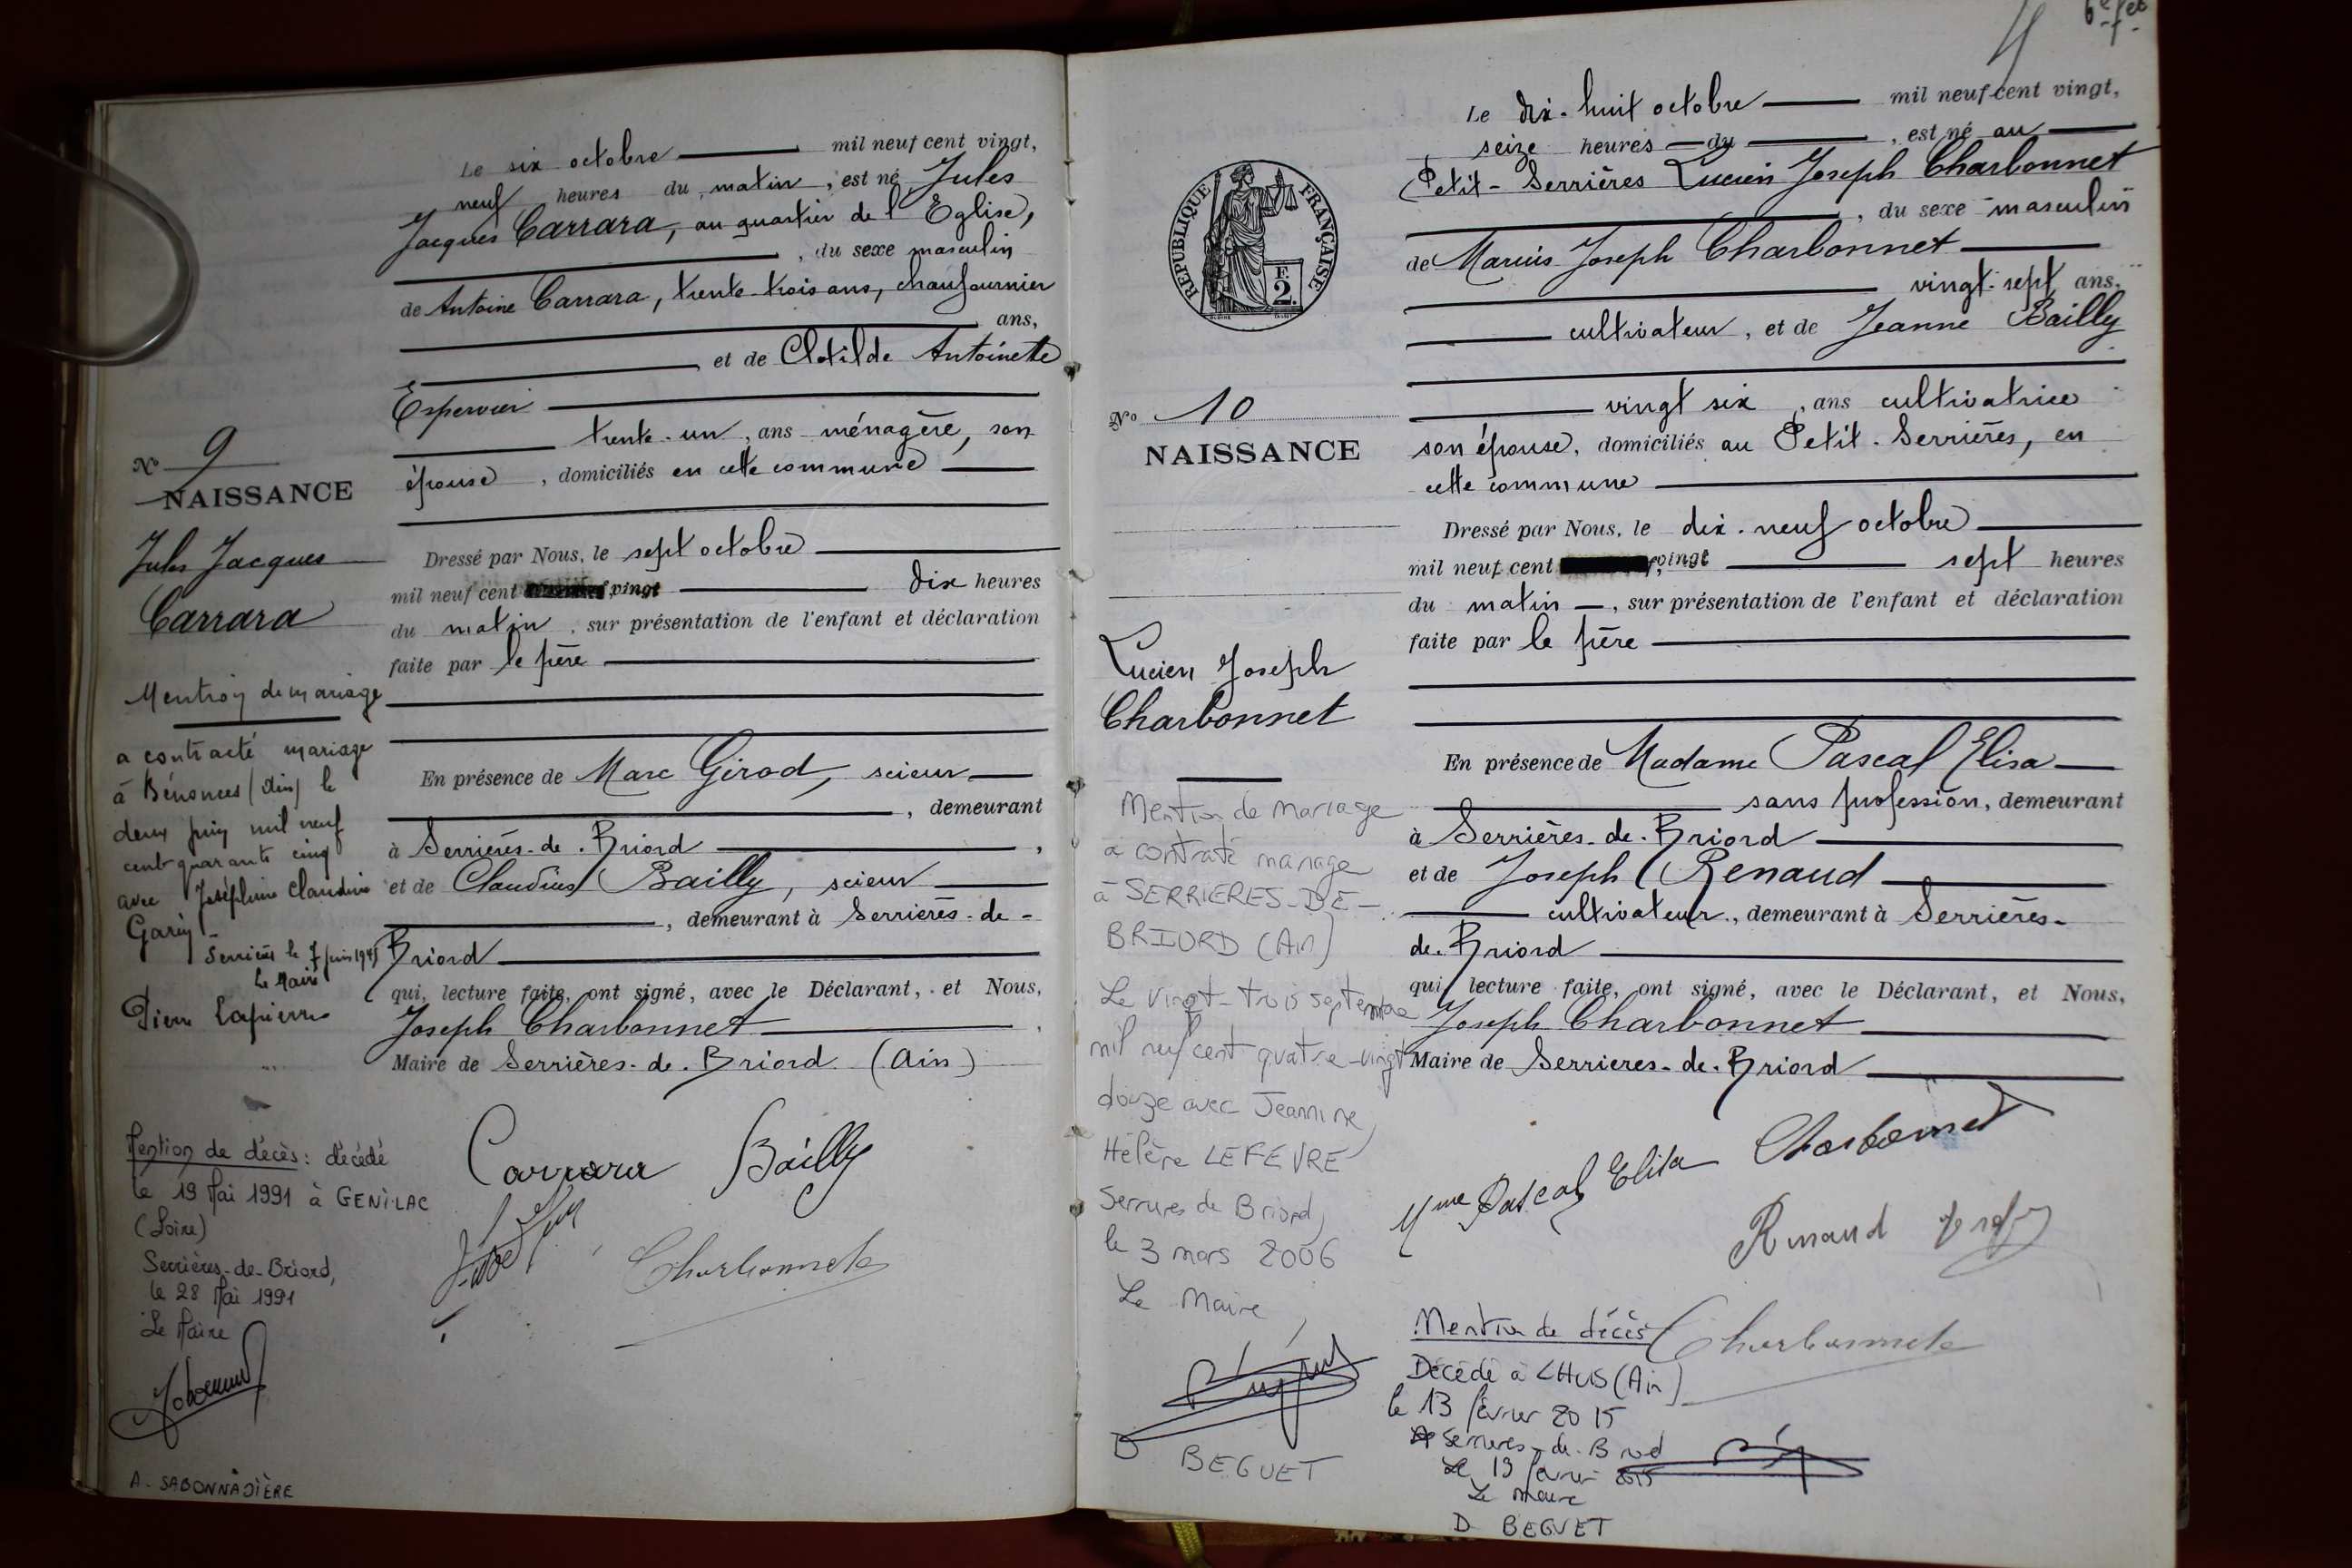 Le six octobre mil neuf cent vingt,
neuf heures du matin, est né Jules
Jacques Carrara, au quartier de l'Eglise,
, du sexe masculin
de Antoine Carrara, trente-trois ans, chaufournier
ans,
et de Clotilde Antoinette
Espervier
trente-un, ans ménagère, son
épouse, domiciliés en cette commune
Dressé par Nous, le sept octobre
mil neuf cent vingt dix heures
du matin, sur présentation de l'enfant et déclaration
faite par le père
En présence de Marc Girod, scieur
, demeurant
à Serrières-de-Briord,
et de Claudius Bailly, scieur
, demeurant à Serrières-de-
Briord
qui, lecture faite, ont signé, avec le Déclarant, et Nous,
Joseph Charbonnet
Maire de Serrières-de-Briord (Ain)
Carrara Bailly
Charbonnet
No 9
NAISSANCE
Jules Jacques
Carrara
Mention de mariage
a contracté mariage
à Bénonces (Ain) le
deux juin mil neuf
cent quarante cinq
avec Joséphine Claudine
Garin
Serrières le 7 juin 1945
Le Maire
Pierre Lapierre
Mention de décès : décédé
le 19 Mai 1991 à GENILAC
(Loire)
Serrières-de-Briord,
le 28 Mai 1991
Le Maire
A. SABONNADIÈRE
Le dix-huit octobre mil neuf cent vingt,
seize heures du , est né au
Petit-Serrières Lucien Joseph Charbonnet
, du sexe masculin
de Marius Joseph Charbonnet
vingt-sept ans,
cultivateur, et de Jeanne Bailly
vingt six, ans cultivatrice
son épouse, domiciliés au Petit-Serrières, en
cette commune
Dressé par Nous, le dix-neuf octobre
mil neuf cent vingt sept heures
du matin, sur présentation de l'enfant et déclaration
faite par le père
En présence de Madame Pascal Elisa
sans profession, demeurant
à Serrières-de-Briord
et de Joseph Renaud
cultivateur, demeurant à Serrières-
de-Briord
qui, lecture faite, ont signé, avec le Déclarant, et Nous,
Joseph Charbonnet
Maire de Serrières-de-Briord
Mme Pascal Elisa Charbonnet
Renaud
Charbonnet
RÉPUBLIQUE FRANÇAISE
F.
2.
No 10
NAISSANCE
Lucien Joseph
Charbonnet
Mention de Mariage
a contraté mariage
à SERRIERES-DE-
BRIORD (Ain)
Le vingt-trois septembre
mil neuf cent quatre-vingt
douze avec Jeannine
Hélène LEFEVRE
Serrières de Briord,
le 3 mars 2006
Le Maire
D BEGUET
Mention de décès
Décédé à LHUIS (Ain)
le 13 février 2015
Serrières-de-Briord
Le 13 février 2015
Le maire
D BEGUET